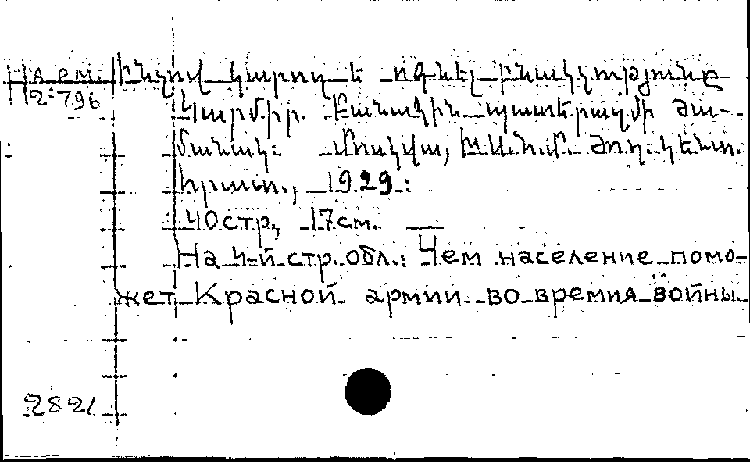 На ем. Ինչով կարող է օգնել բնակչությունը
12-796 Կարմիր Բանակին պատերազմի ժա-
մանակ: Մոսկվա, ԽՍՀՄ ժող. կենտ.
հրատ., 1929:
40 стр, 17см.
На 4-й стр. обл.: Чем население помо-
жет Красной армии во времия войны
2821